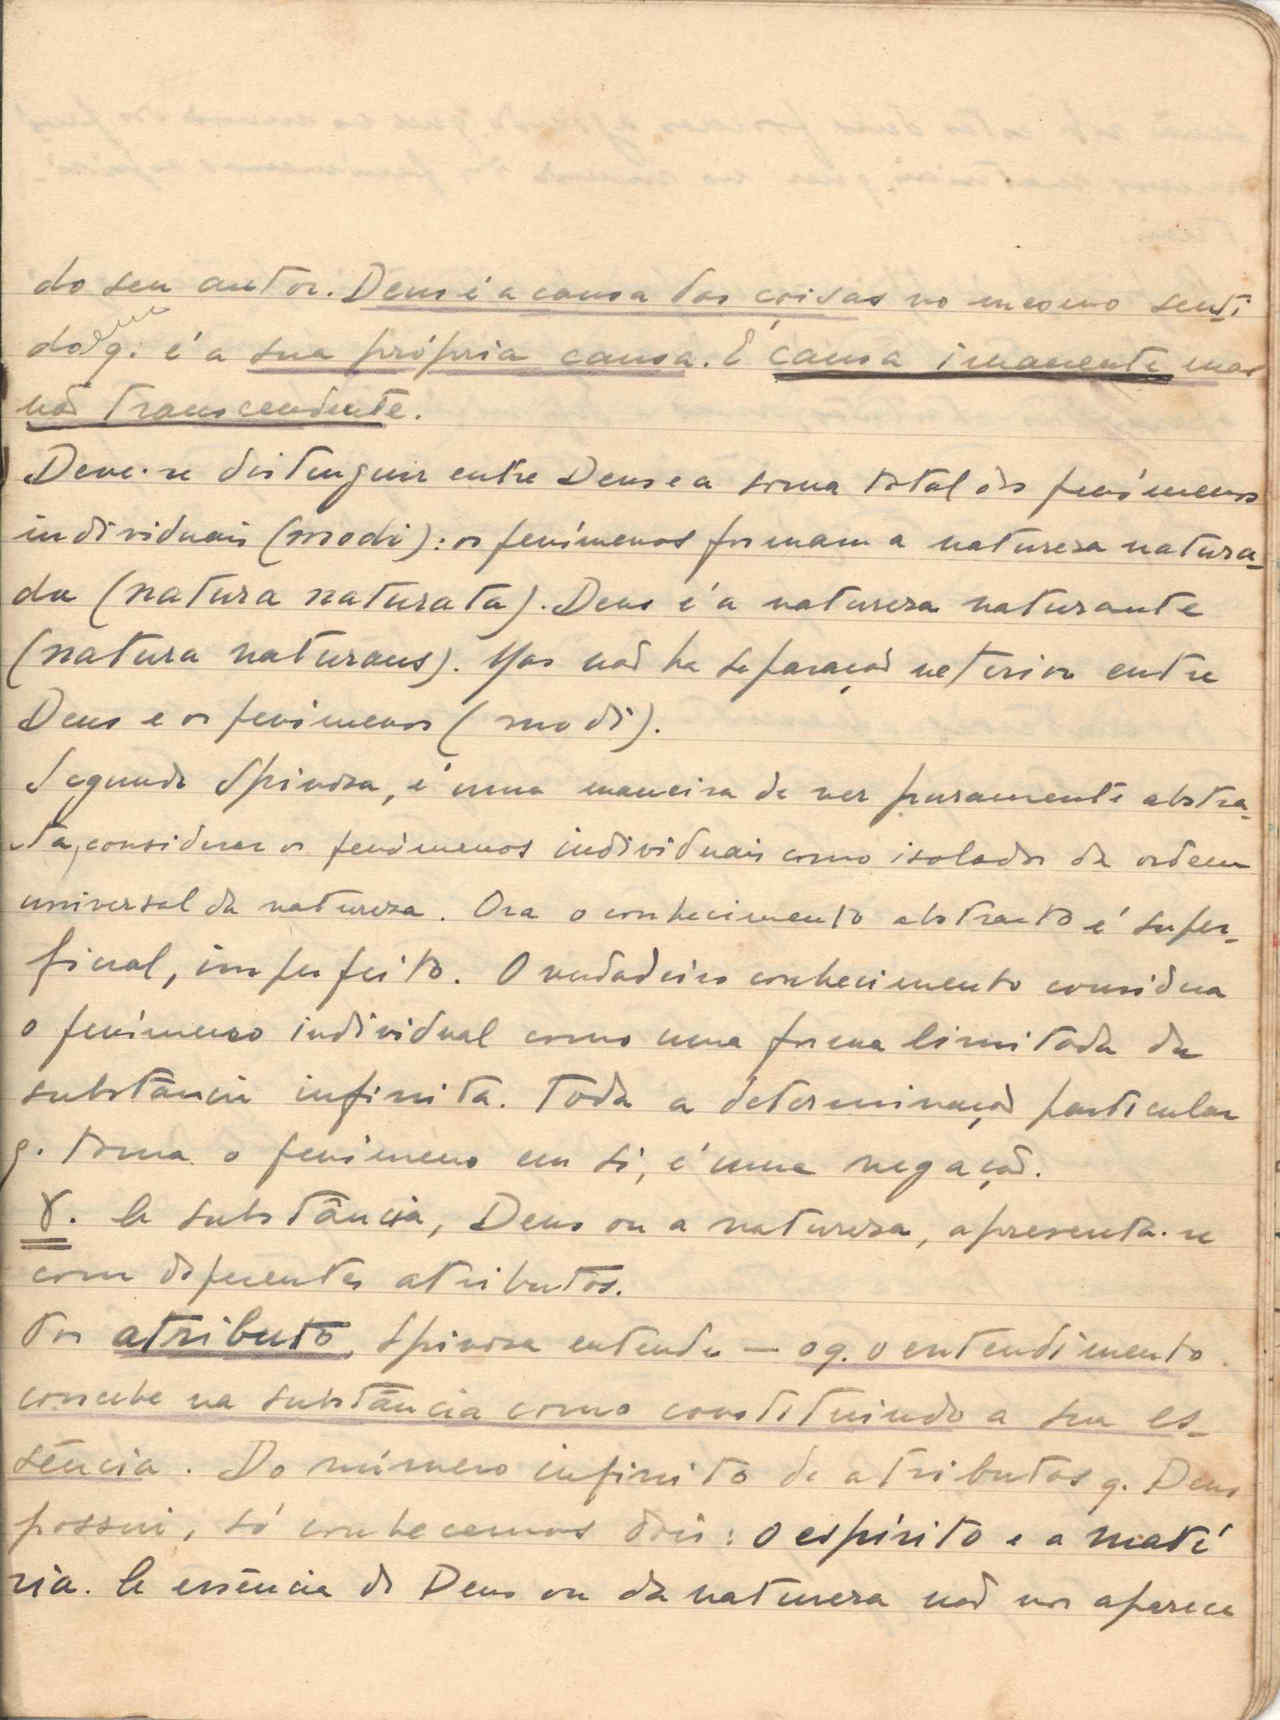 do seu autor. Deus é a causa das coisas no mesmo senti
do q. é a sua própria causa. É causa imanente mas
não transcendente.
Deve-se distinguir entre Deus e a soma total dos fenómenos
individuais (modi): os fenómenos formam a natureza natura-
da (natura naturata). Deus é a natureza naturante
(natura naturans). Mas não ha separação entre
Deus e os fenómenos (modi).
Segundo Spinosa, é uma maneira de ver puramente abstra-
ta, considerar os fenómenos individuais como isolados da ordem
universal da natureza. Ora o conhecimento abstracto é super-
ficial, imperfeito. O verdadeiro conhecimento considera
o fenómeno individual como uma forma limitada da
substância infinita. Toda a determinação particular
q. toma o fenómeno em si, é uma negação.
γ. A substância, Deus ou a natureza, apresenta-se
com diferentes atributos.
Por atributo, Spinosa entende — o q. o entendimento
concebe na substância como constituindo a sua es-
sência. Do número infinito de atributos q. Deus
possui, só conhecemos dois: o espírito e a maté
ria. A essência de Deus ou da natureza não nos aparece